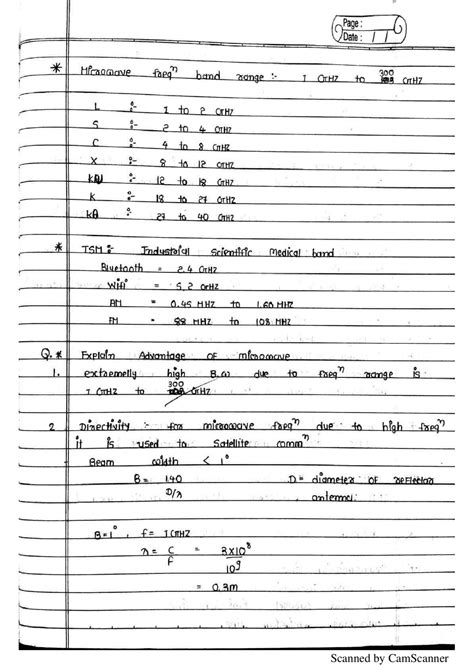 Page :
Date : / /
* Microwave freqⁿ band range :- 1 GHZ to 300 GHZ
L :- 1 to 2 GHZ
S :- 2 to 4 GHZ
C :- 4 to 8 GHZ
X :- 8 to 12 GHZ
KU :- 12 to 18 GHZ
K :- 18 to 27 GHZ
KA :- 27 to 40 GHZ
* ISM :- Industrial Scientific Medical band
Bluetooth = 2.4 GHZ
Wifi = 5.2 GHZ
AM = 0.45 MHZ to 1.60 MHZ
FM = 88 MHZ to 108 MHZ
Q. * Explain Advantage OF microwave
1. extremelly high B.W due to freqⁿ range is
1 GHZ to 300 GHZ
2 Directivity :- for microwave freqⁿ due to high freqⁿ
it is used to Satellite commⁿ
Beam width < 1°
B = 140 D = diameter OF reflector
D/λ antenna.
B = 1°, f = 1 GHZ
λ = C = 3X10⁸
f 10⁹
= 0.3m
Scanned by CamScanner